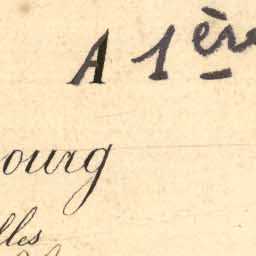 A 1ère
ourg
lles